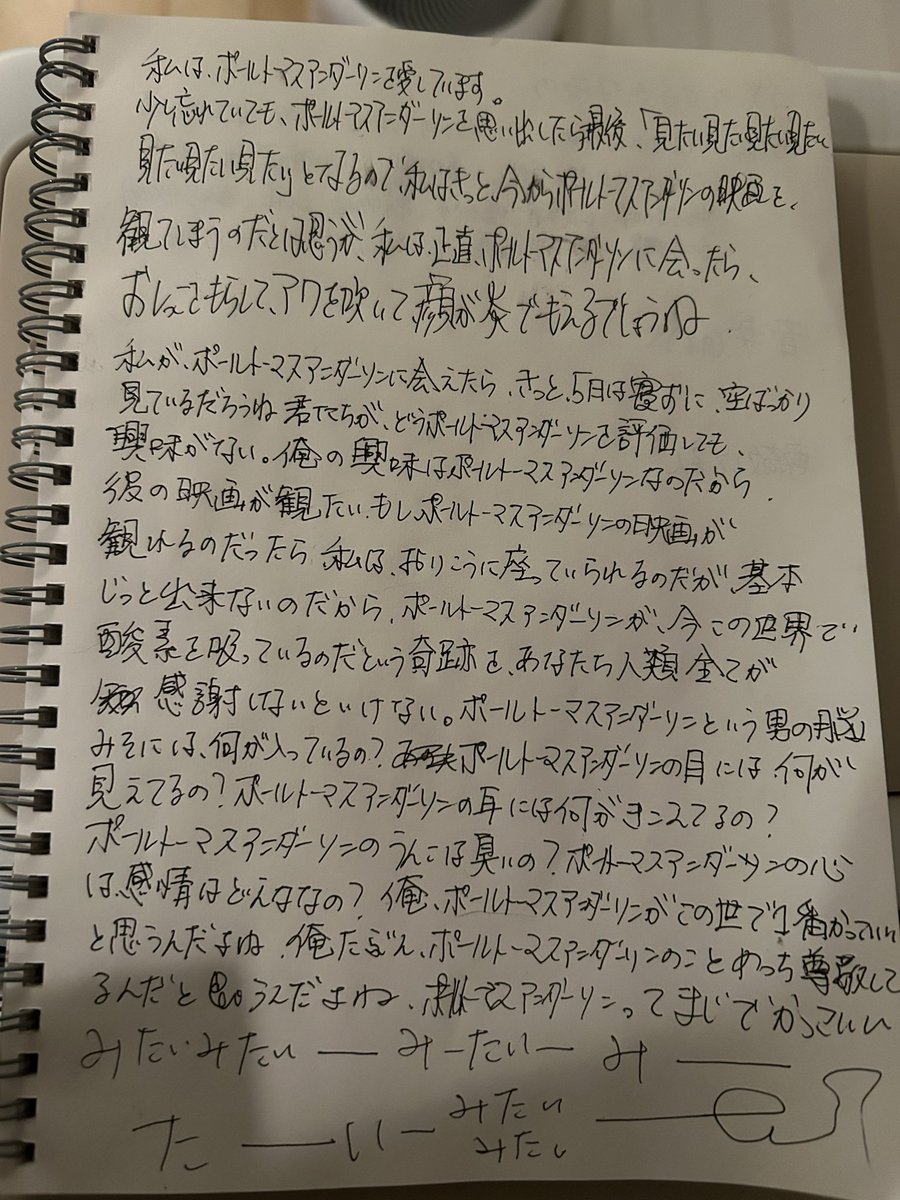 私は、ポールトーマスアンダーソンを愛しています。
少し忘れていても、ポールトーマスアンダーソンを思い出したら最後、「見たい見たい見たい見たい
見たい見たい見たい」となるので、私はきっと、今からポールトーマスアンダーソンの映画を、
観てしまうのだとは思うが、私は、正直、ポールトーマスアンダーソンに会ったら、
おしっこもらして、アワを吹いて、顔が炎でもえるでしょうね.
私が、ポールトーマスアンダーソンに会えたら、きっと、5月は寝ずに、空ばかり
見ているだろうね 君たちが、どうポールトーマスアンダーソンを評価しても、
興味がない。俺の興味はポールトーマスアンダーソンなのだから.
彼の映画が観たい.もし、ポールトーマスアンダーソンの映画が
観れるのだったら、私は、おりこうに座っていられるのだが、基本
じっと出来ないのだから、ポールトーマスアンダーソンが、今この世界で
酸素を吸っているのだという奇跡を、あなたち人類全てが
感謝しないといけない。ポールトーマスアンダーソンという男の脳
みそには、何が入っているの?ポールトーマスアンダーソンの目には、何が
見えてるの?ポールトーマスアンダーソンの耳には何がきこえてるの?
ポールトーマスアンダーソンのうんこは臭いの?ポールトーマスアンダーソンの心
は、感情はどんななの?俺、ポールトーマスアンダーソンがこの世で1番かっこいい
と思うんだよね.俺たぶん、ポールトーマスアンダーソンのことめっち尊敬して
るんだと思うんだよね、ポールトーマスアンダーソンってまじでかっこいい
みたいみたい ― みーたいー み ―
た ― い ― みたい
みたい